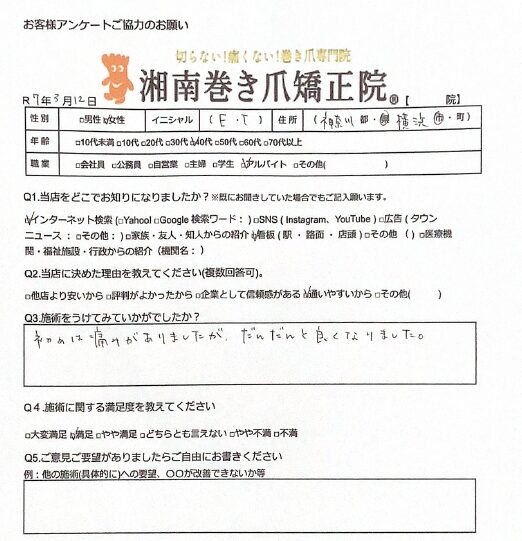 お客様アンケートご協力のお願い
切らない!痛くない!巻き爪専門院
湘南巻き爪矯正院®【 院】
R 7年3月12日
性別 □男性 ☑女性 イニシャル ( E・T ) 住所 ( 神奈川 都・県 横浜 市・町)
年齢 □10代未満 □10代 □20代 □30代 ☑40代 □50代 □60代 □70代以上
職業 □会社員 □公務員 □自営業 □主婦 □学生 ☑アルバイト □その他( )
Q1.当店をどこでお知りになりましたか?※既にお聞きしていた場合でもご記入願います。
☑インターネット検索(□Yahoo! □Google 検索ワード: ) □SNS ( Instagram、YouTube ) □広告 ( タウン
ニュース : □その他: ) □家族・友人・知人からの紹介 ☑看板 ( 駅 ・ 路面 ・ 店頭 ) □その他 ( ) □医療機
関・福祉施設・行政からの紹介(機関名: )
Q2.当店に決めた理由を教えてください(複数回答可)。
□他店より安いから □評判がよかったから □企業として信頼感がある ☑通いやすいから □その他( )
Q3.施術をうけてみていかがでしたか?
初めは痛みがありましたが、だんだんと良くなりました。
Q4.施術に関する満足度を教えてください
□大変満足 ☑満足 □やや満足 □どちらとも言えない □やや不満 □不満
Q5.ご意見ご要望がありましたらご自由にお書きください
例:他の施術(具体的に)への要望、〇〇が改善できないか等